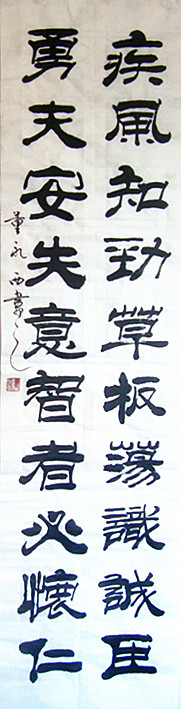 疾風知勁草板蕩識誠臣
勇夫安失意智者必懷仁
董永西書